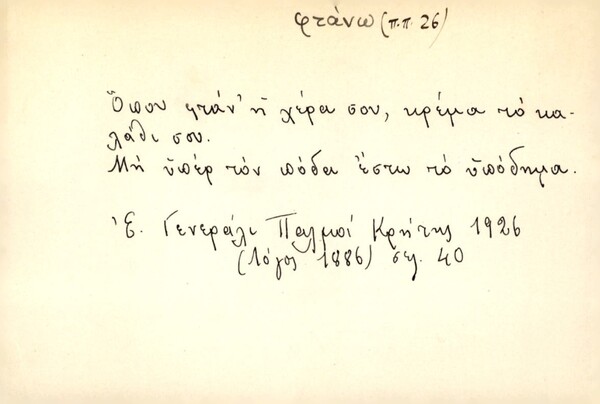 φτάνω (π.π. 26)
Ὅπου φτάν' ἡ χέρα σου, κρέμα τὸ κα-
λάθι σου.
Μὴ ὑπὲρ τὸν πόδα ἔστω τὸ ὑπόδημα.
Ἐ. Γενεράλι Παλμοί Κρήτης 1926
(Λόγος 1886) σελ. 40